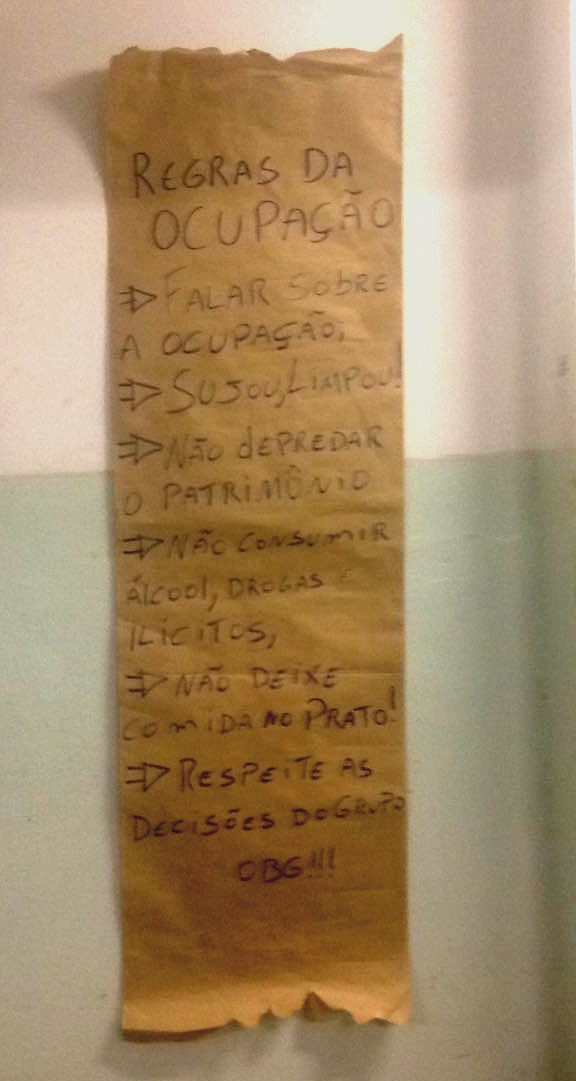 REGRAS DA
OCUPAÇÃO
⇒ FALAR SOBRE
A OCUPAÇÃO;
⇒ SUJOU, LIMPOU!
⇒ NÃO dEPREDAR
O PATRIMÔNIO
⇒ NÃO CONSUMIR
ÁLCOOl, DROGAS E
ILÍCITOS,
⇒ NÃO DEIXE
COMIDA NO PRATO!
⇒ RESPEITE AS
DECISÕES DO GRUPO
OBG!!!